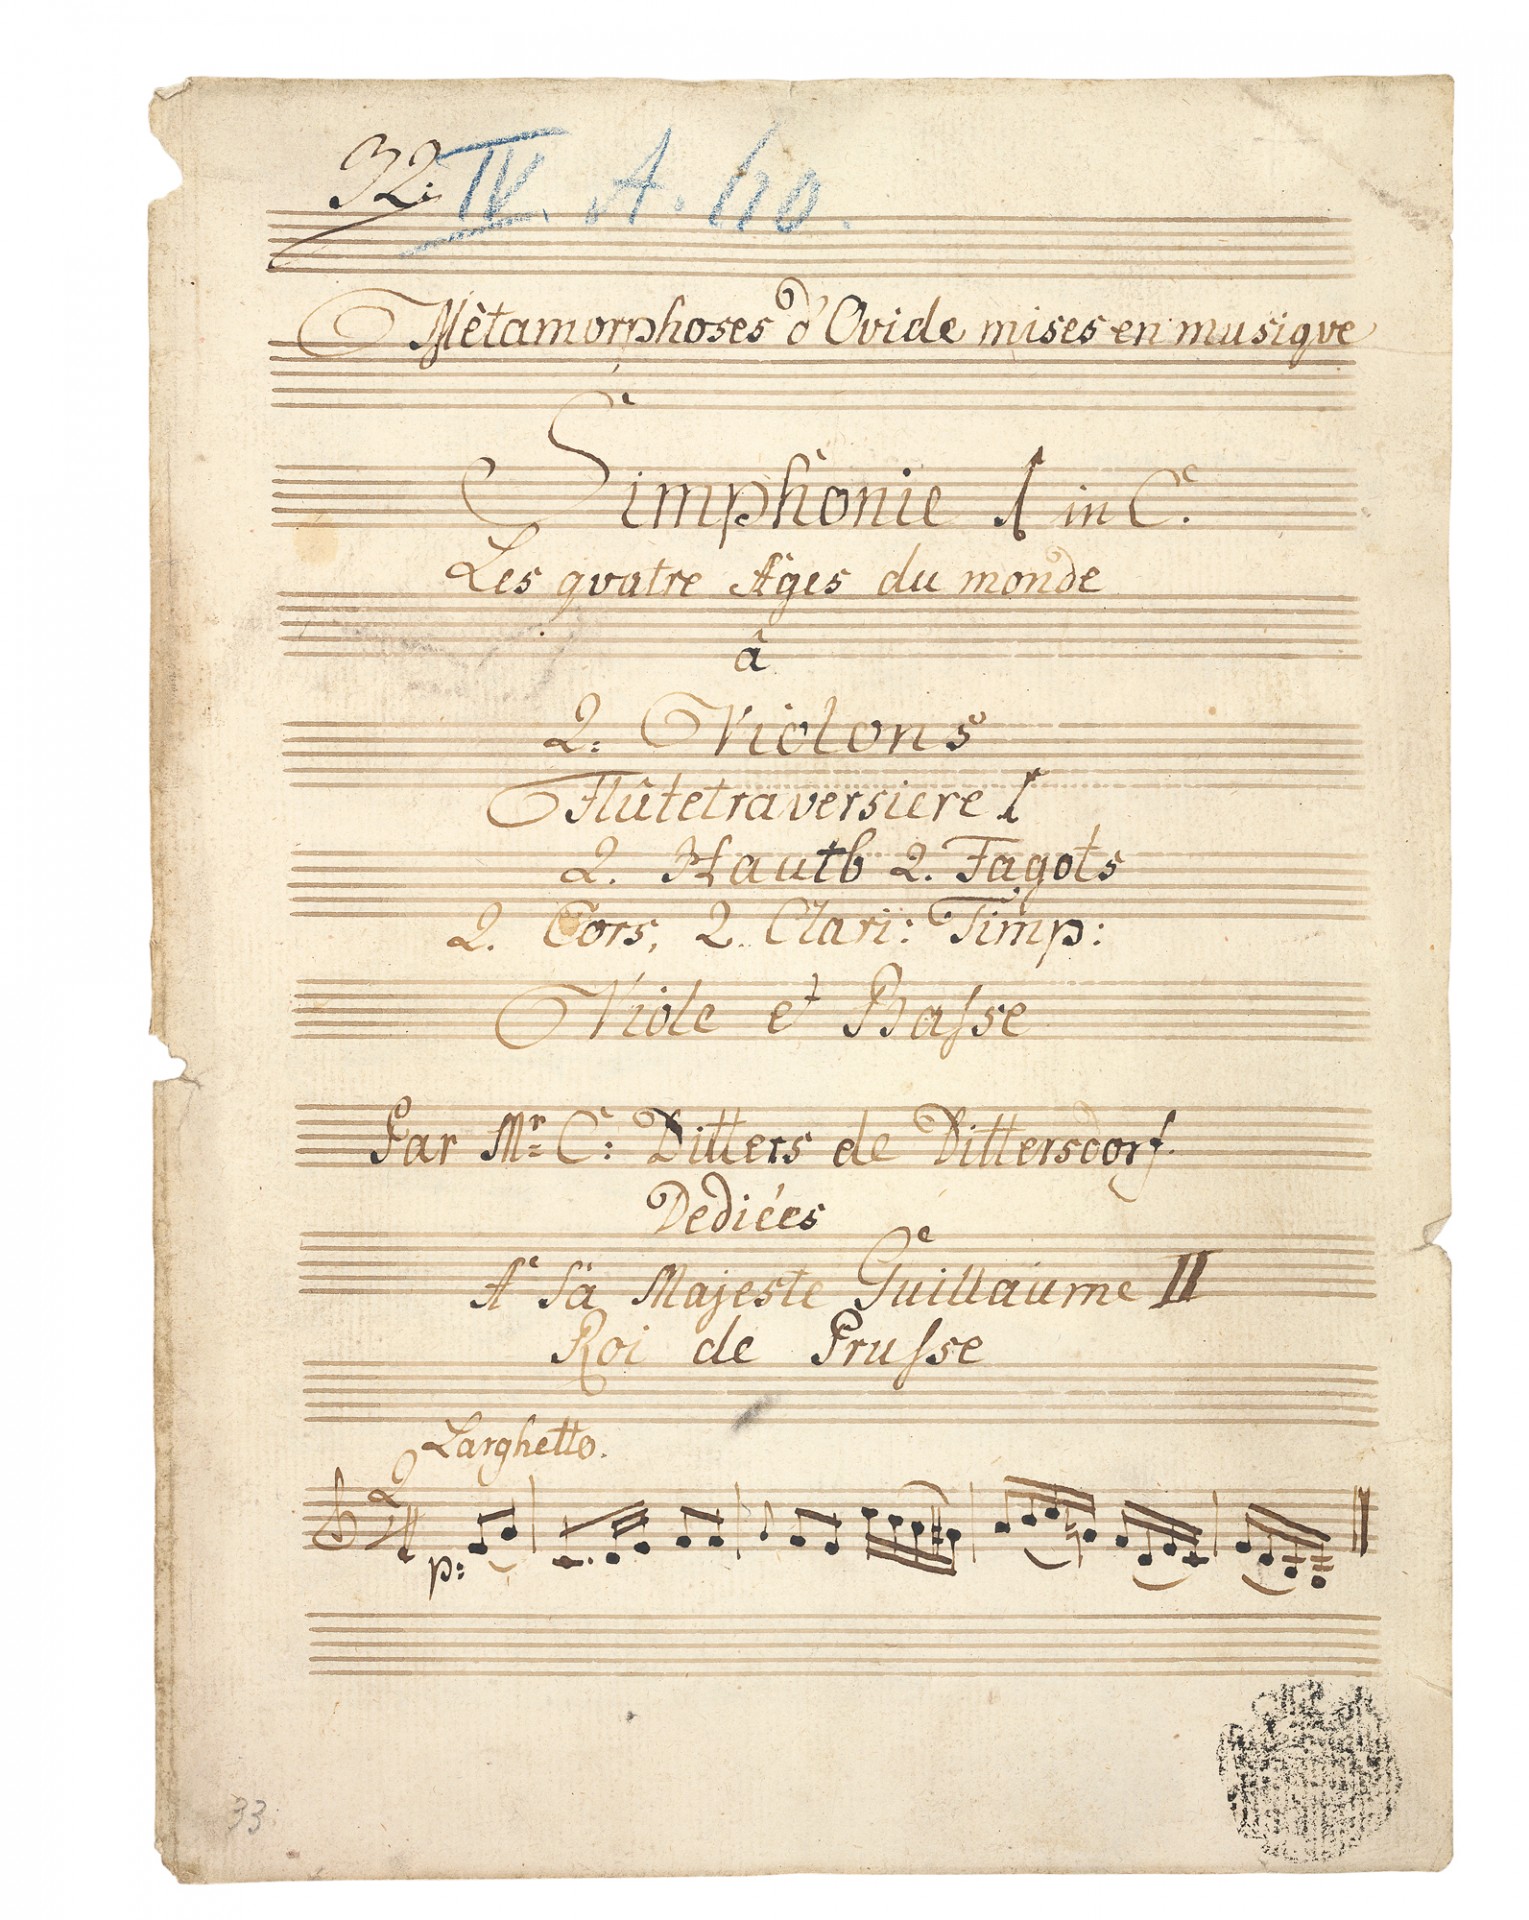 32: IV. A. 40.
Mêtamorphoses d'Ovide mises en musique
Simphonie 1 in C.
Les quatre Âges du monde
â
2. Violons
Flûtetraversiere 1
2. Hautb 2. Fagots
2. Cors, 2. Clari: Timp:
Viole et Basse
Par Mr. C: Ditters de Dittersdorf.
Dediées
A Sa Majeste Guillaume II
Roi de Prusse
Larghetto.
p:
33.